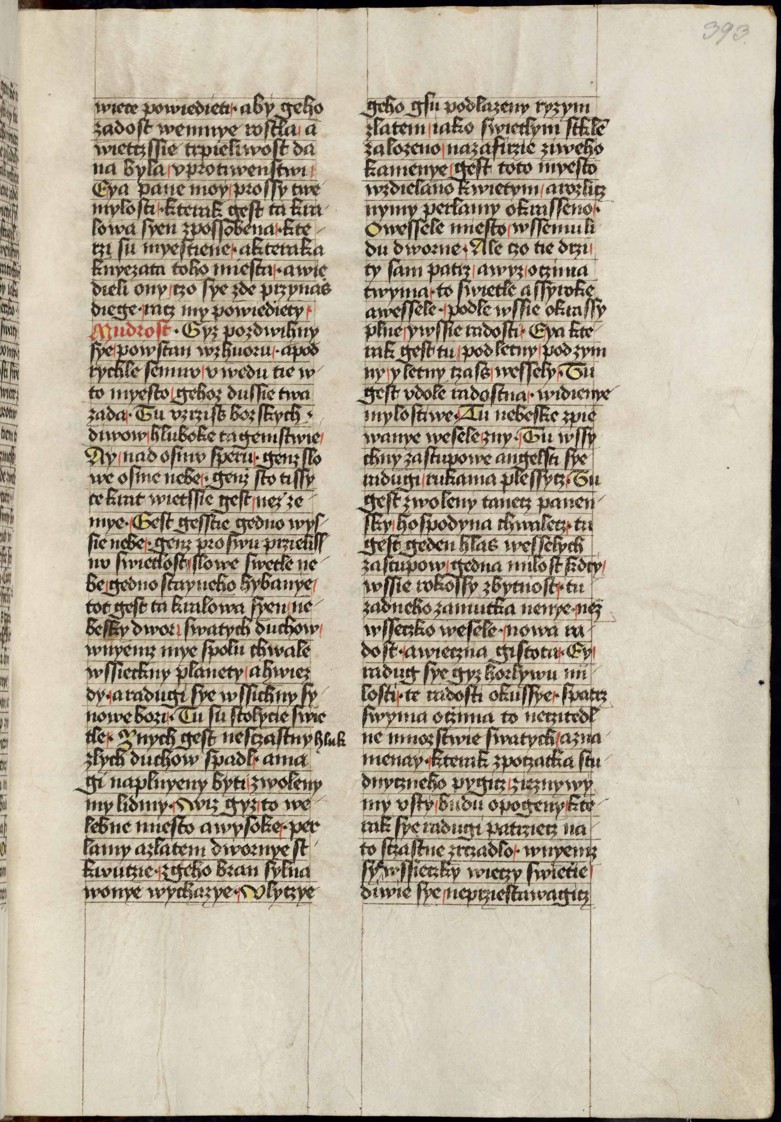 393
wiete powiedieti· aby geho
zadost wemnye rostla, a
wietczssie trpieliwost da
na byla, vprotiwenstwi,
Eya pane moy, prossy twe
mylosti· kterak gest ta kra
lowa syen zpossobena· kte
rzi su myestiene· akteraka
knyezata toho miesta, awie
dieli ony, czo sye zde przynas
diege· racz my powiediety,
Mudrost· Gyz pozdwihny
sye, powstan wzhuoru· apod
rychle semnu, vwedu tie w
to myesto, gehoz dussie twa
zada· Tu vzrziss bozskych·
diwow, hluboke tagemstwie,
Ay, nad osmu speru· genz slo
we osme nebe· genz sto tissy
ce krat wietssie gest, nez ze
mye· Gest gesstie gedno wys
sie nebe· genz proswu przielis
nu swietlost, slowe swetle ne
be, gedno stayneho hybanye,
tot gest ta kralowa syen, ne
besky dwor, swatych duchow,
wnyemz mye spolu chwale
wssieckny planety, ahwiez
dy, aradugi sye wssichny sy
nowe bozi· Tu su stolycie swie
tle· Znych gest nesczastny hluk
zlych duchow spadl· ama
gi napluyeny byti, zwoleny
my lidmy· Wiz gyz, to we
lebne miesto awysoke· per
lamy azlatem dwornye st
kwucie· zgeho bran sylna
wonye wychazye· Vlyczye
geho gsu podlazeny ryzym
zlatem, iako swietlym skle
zalozeno, nazafirzie ziweho
kamenye, gest toto myesto
wzdielano kwietym, arozlicz
nymy perlamy okrasseno·
O wessele miesto, wssemu li
du dworne· Ale czo tie drzi,
ty sam patrz, awyz, oczima
twyma· to swietle assyroke
awessele· podle wssie okrassy
plne, ywssie radosti· Eya kte
rak gest tu, podletny, podzym
ny, y letny czass, wessely· Tu
gest vdole radostna· widienye
mylostiwe· Tu nebeske zpie
wanye weselezny· Tu wssy
chny zastupowe angelsti sye
radugi, rukama plessycz· Tu
gest zwoleny tanecz panen
sky, hospodyna chwalecz· tu
gest geden hlas wesselych
zastupow, gedna milost kdezy,
wssie rokossy zbytnost· tu
zadneho zamutka nenye· nez
wsseczko wesele· nowa ra
dost· awieczna gistota· Ey,
radug sye gyz horlywu mi
losti· te radosti okussye· spatrz
swyma oczima to neczitedl
ne mnozstwie swatych, azna
menay· kterak zpoczatka stu
dnyczneho pygicz, zieznywy
my vsty, budu opogeny, kte
rak sye radugi patrziecz na
to sczastne zrczadlo· wnyemz
sy wssieczky wieczy swietie,
diwie sye, neprziestawagicz